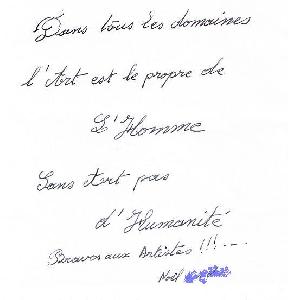 Dans tous les domaines
l'Art est le propre de
L'Homme
Sans Art pas
d'Humanité
Bravos aux Artistes !!! ...
Noël